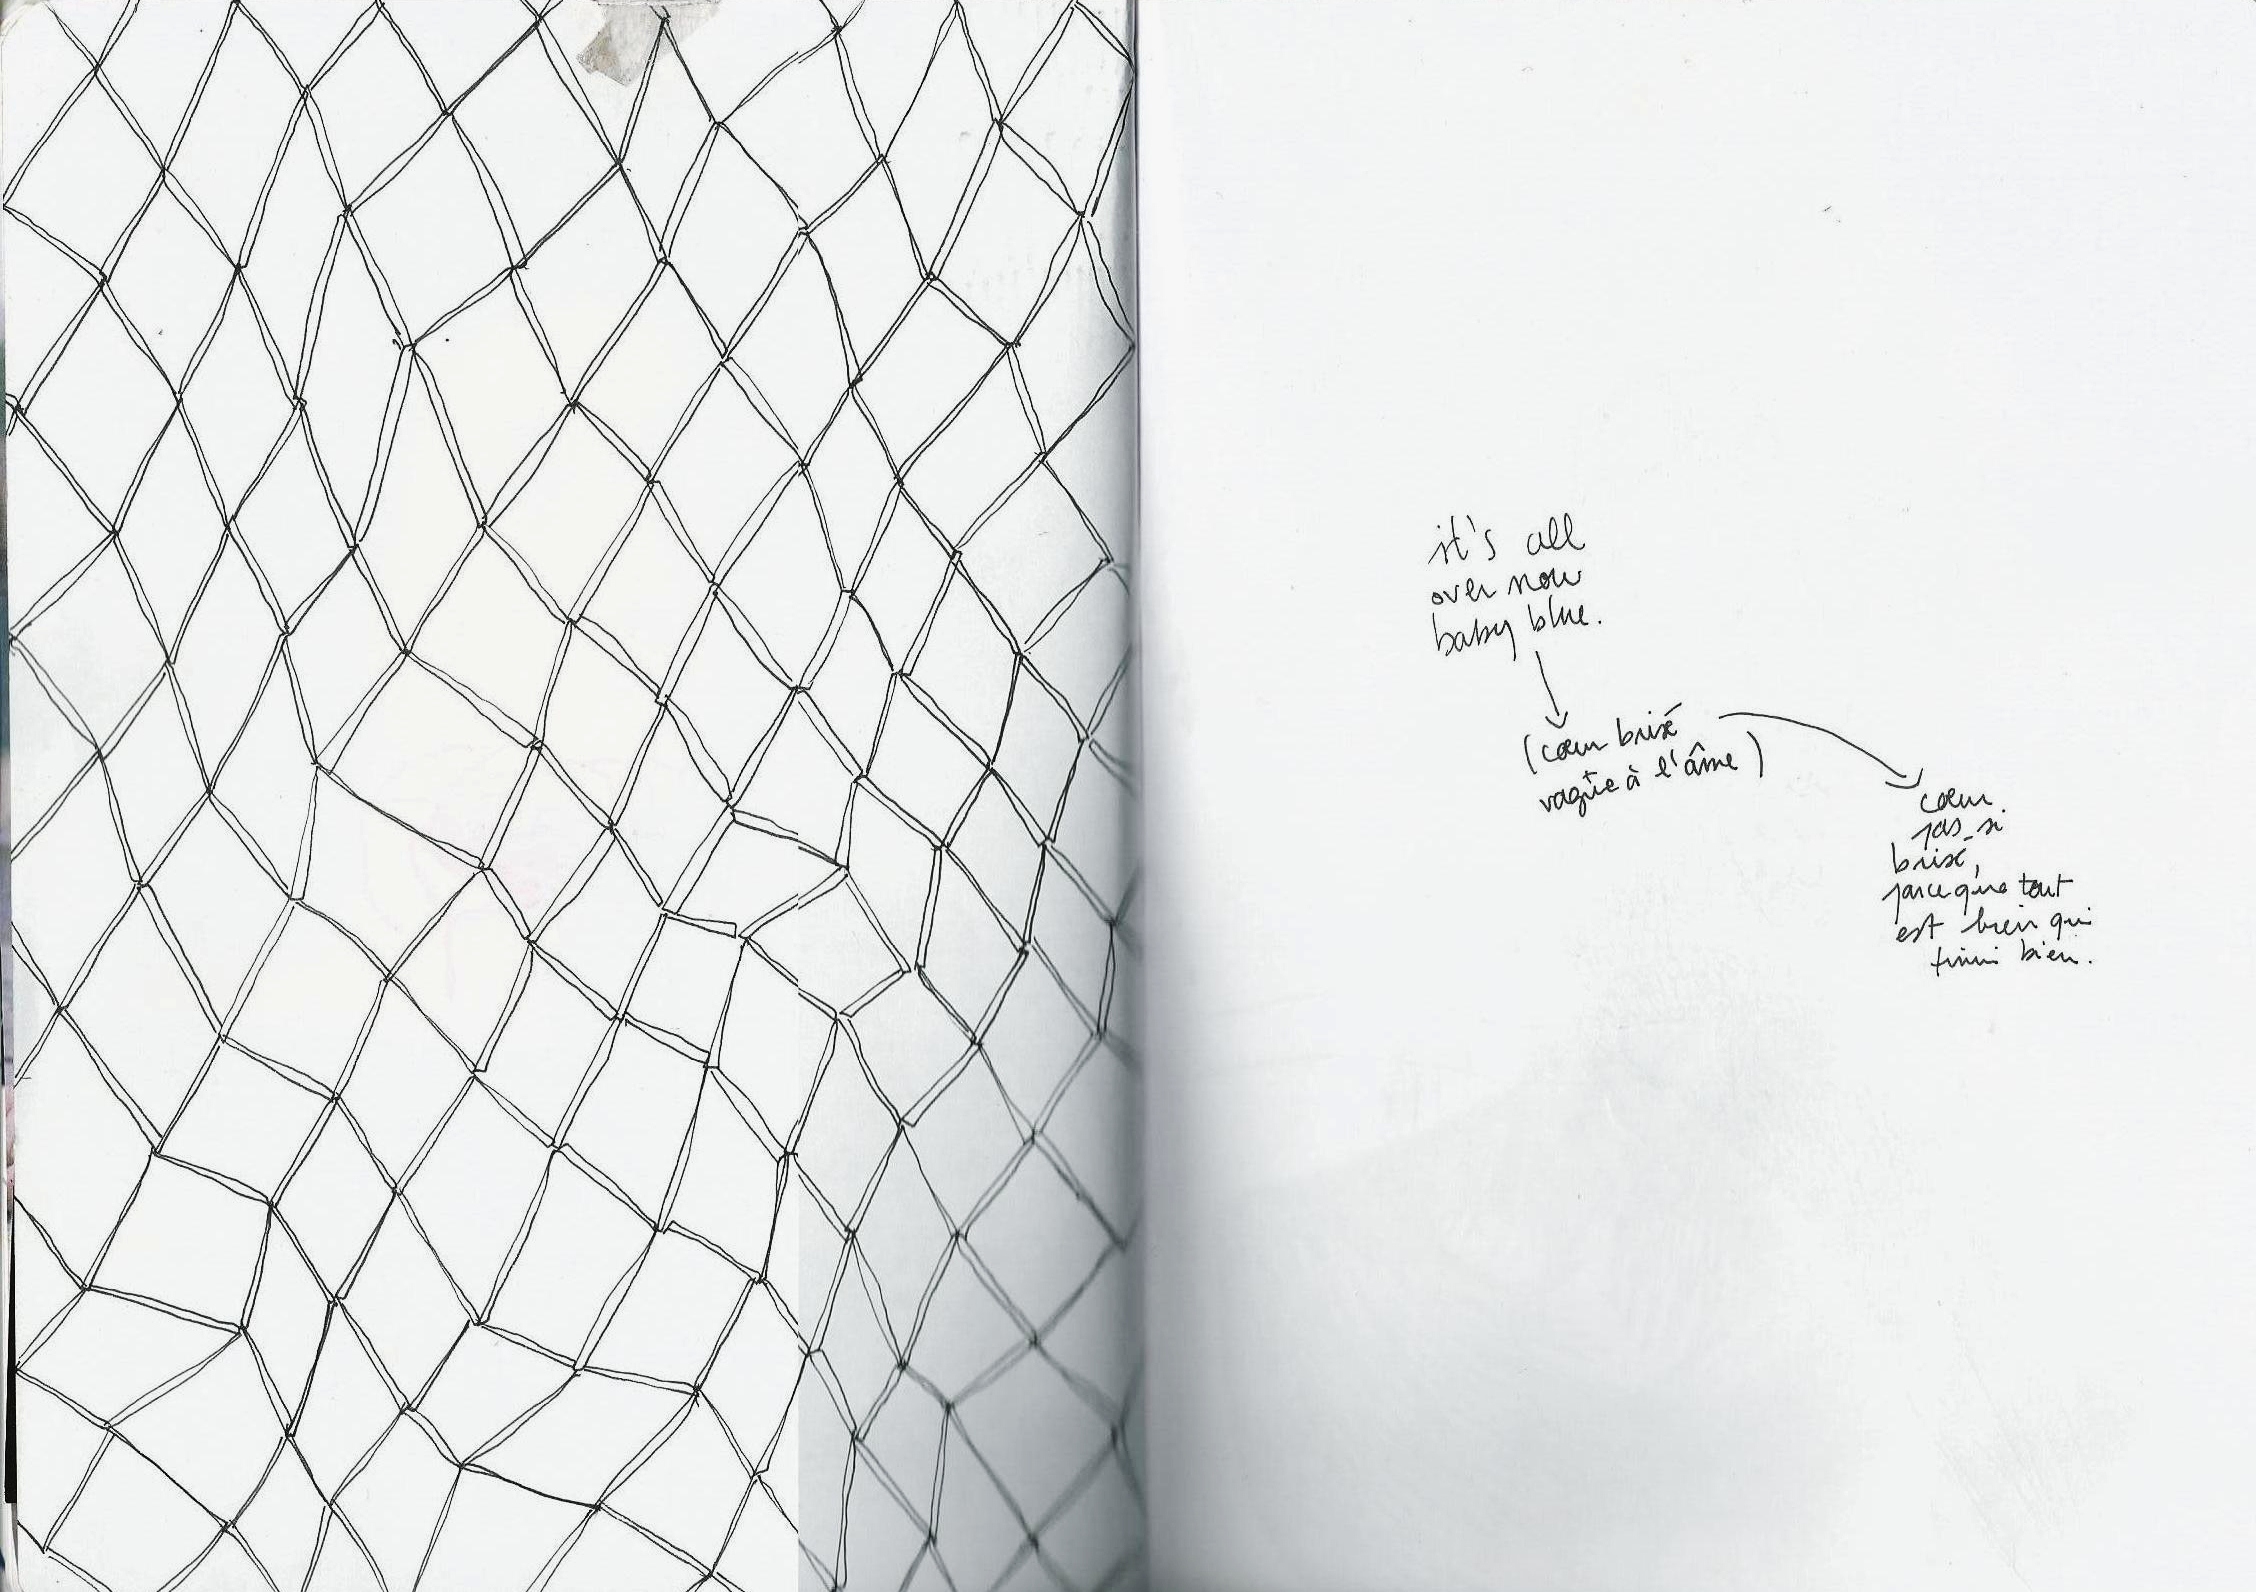 it's all
over now
baby blue.
(cœur brisé
vague à l'âme)
cœur
pas si
brisé,
parce que tout
est bien qui
finit bien.